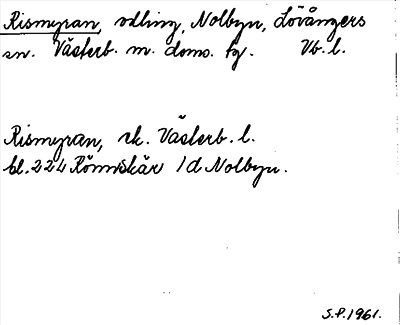 Rismyran, odling, Nolbyn, Lövångers
sn. Västerb. m. doms. fg. Vb. l.
Rismyran, rk. Västerb. l.
bl. 224 Rönnskär 1 d Nolbyn.
S.P. 1961.